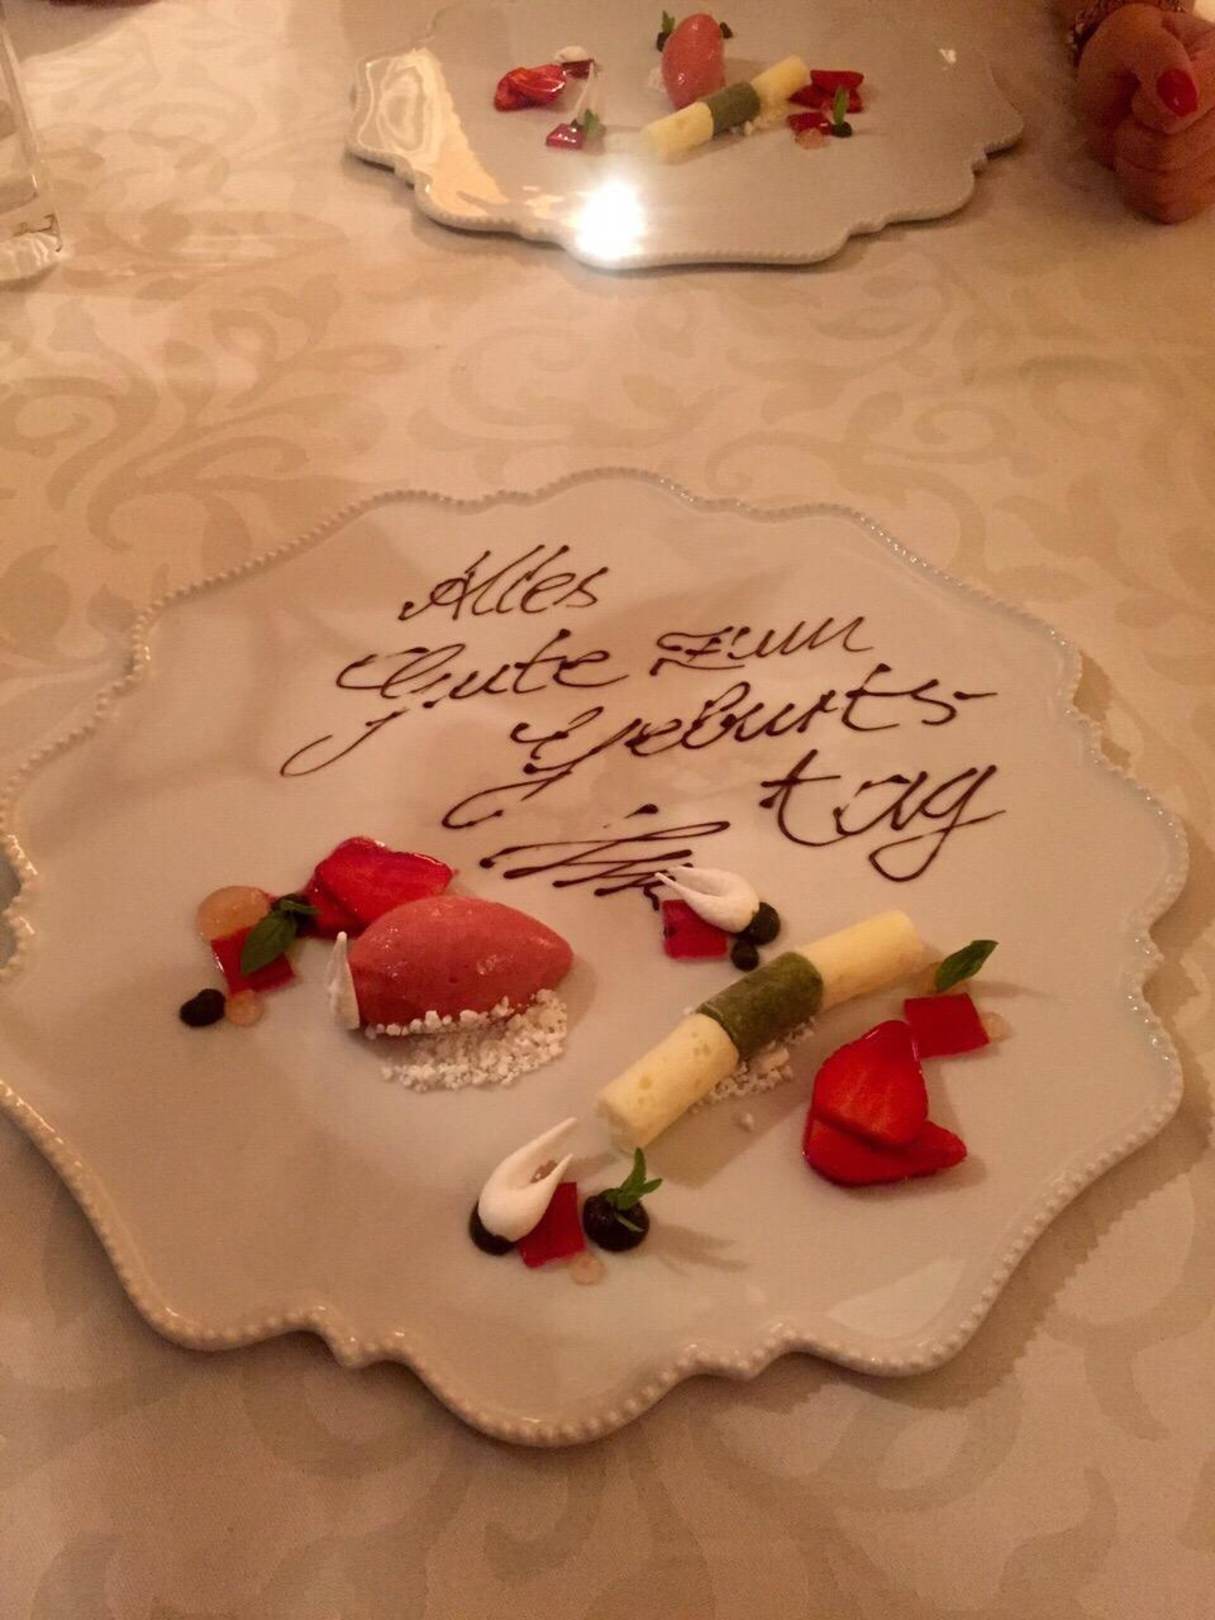 Alles
Gute zum
Geburts-
tag